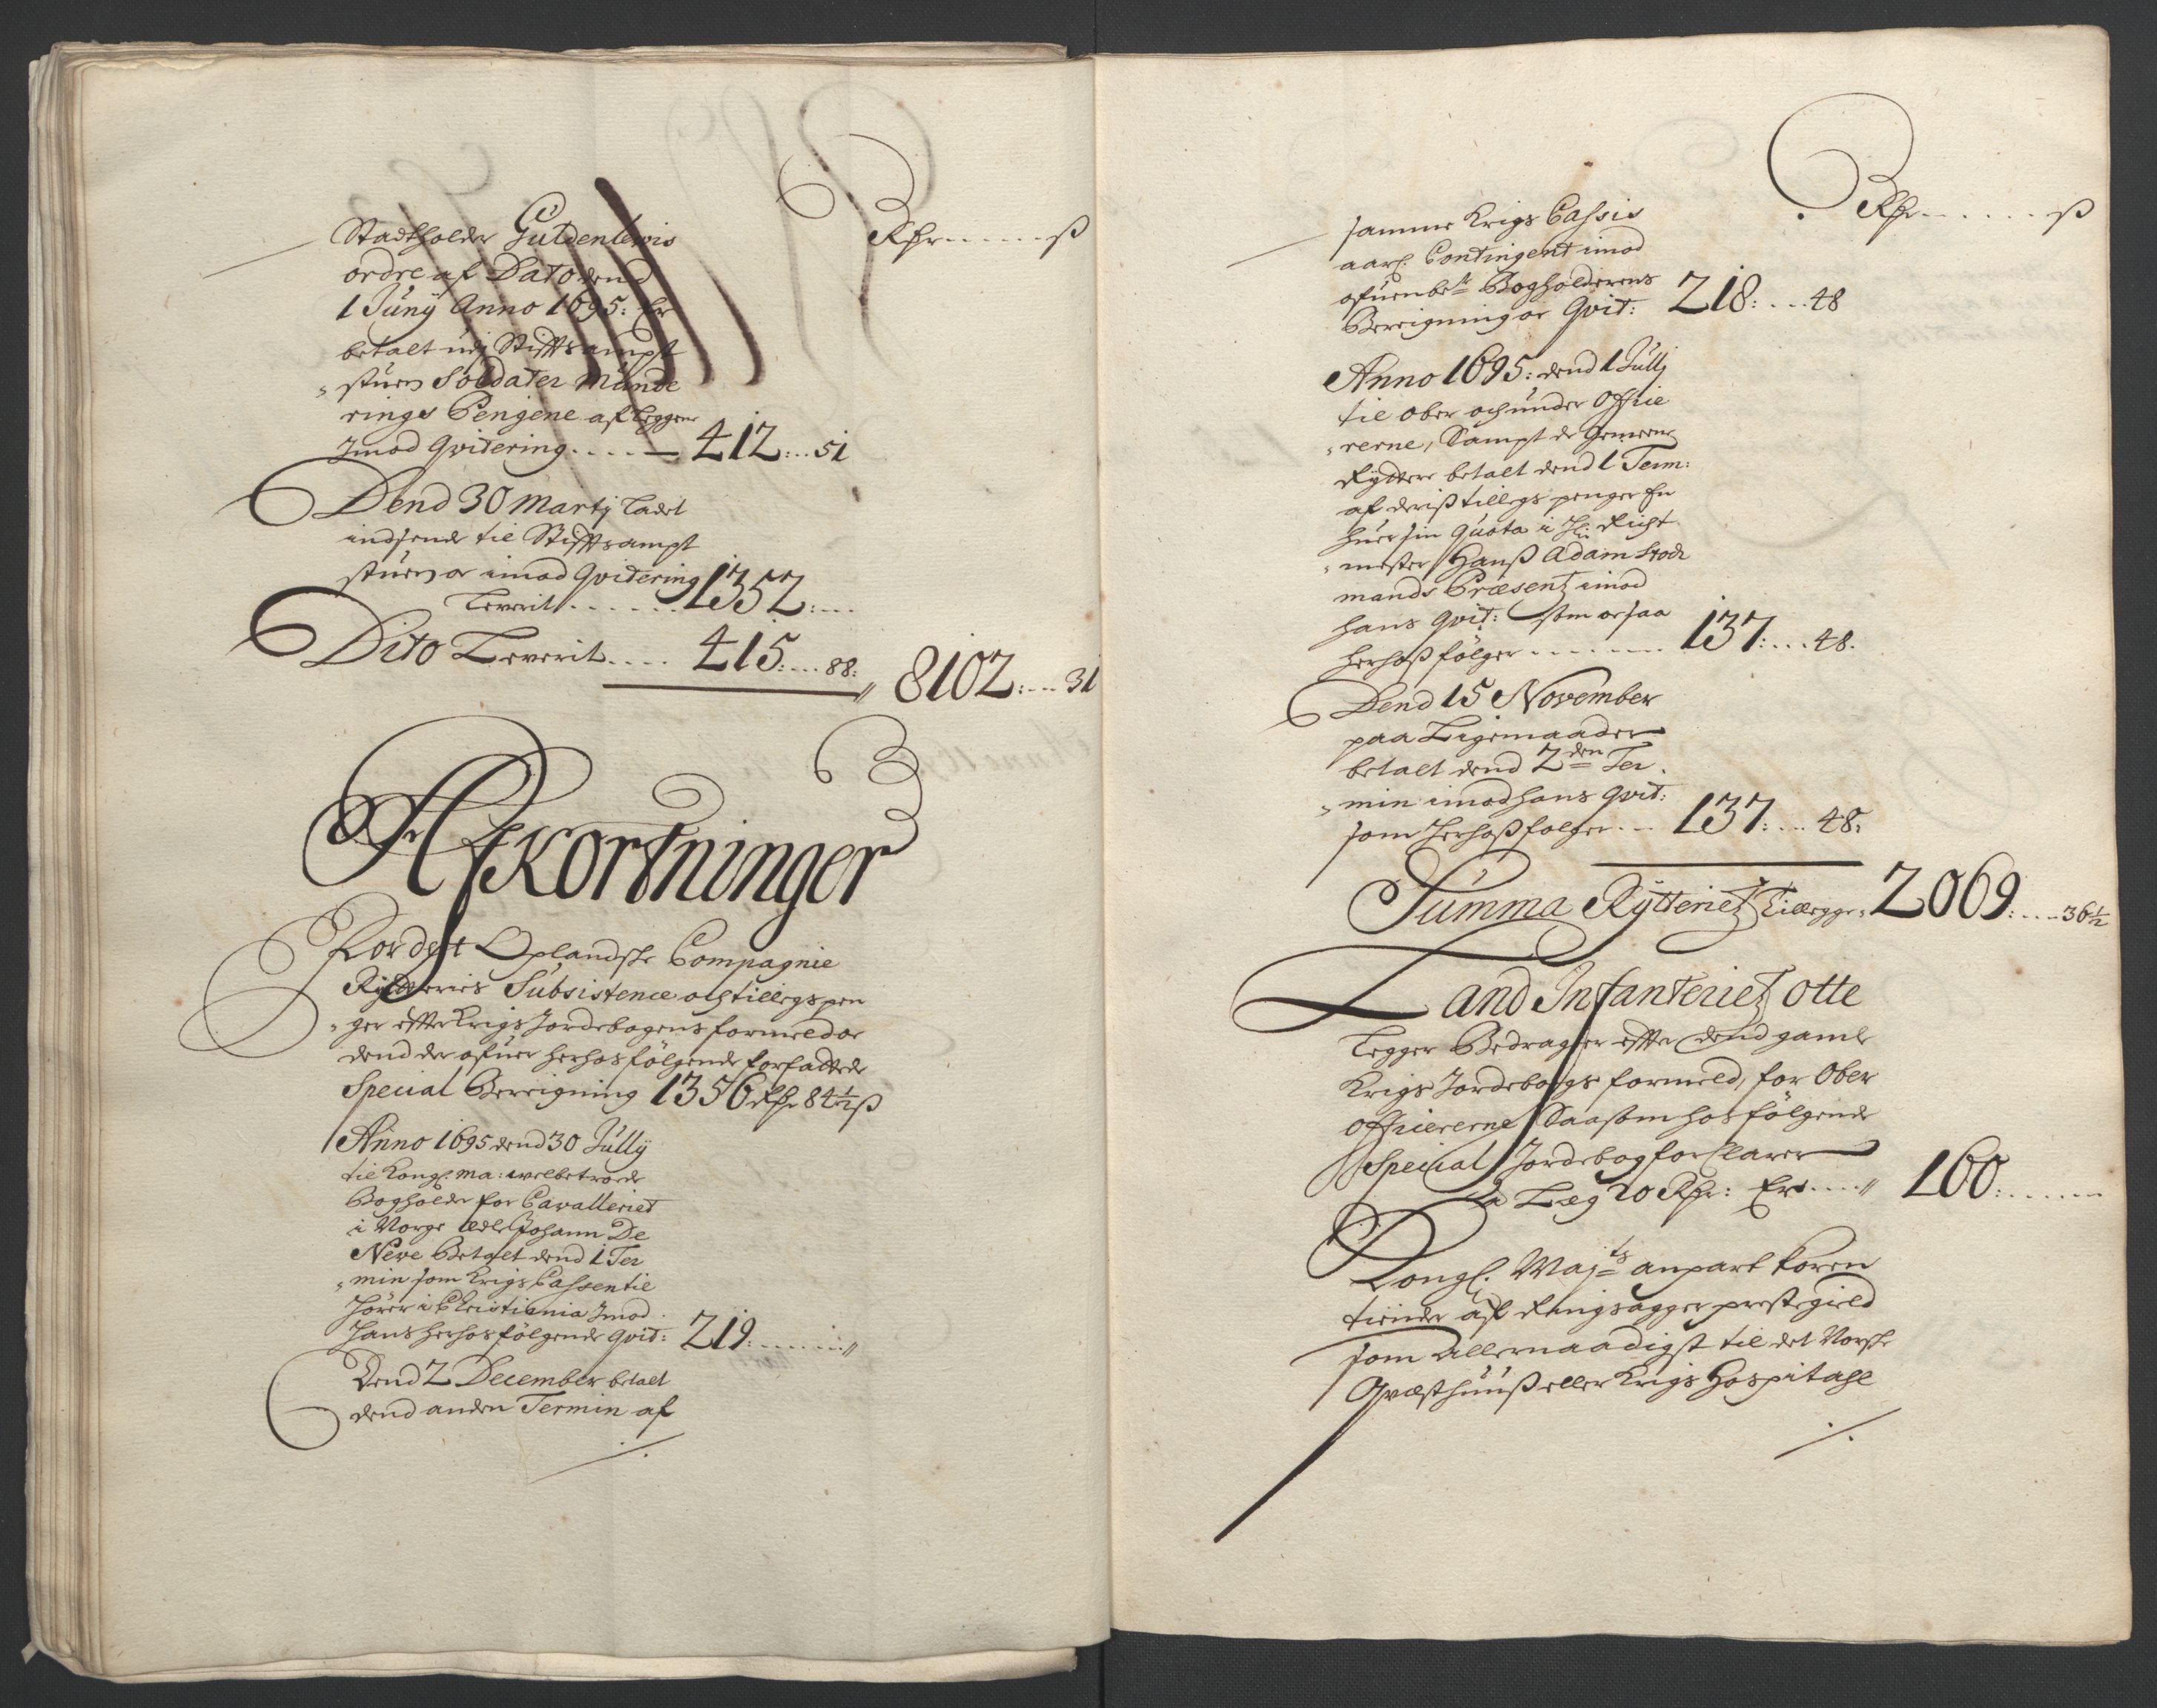 Rhr ..... ß
Stadtholder Guldenlewis
ordre af Dato dend
1 Juny Anno 1695: Er
betalt udj Stiftsampt
stuen Soldater Munde
rings Pengene af Leggene
Jmod Qvitering..... 412:..51
Dend 30 Martj ladet
indsende til Stiftsampt
stuen or imod Qvitering
Leverit ...... 1352:...
Dito Leverit.... 415:...88:
8102:...31
Afkortninger
For det Oplandske Compagnie
Rytteries Subsistence och tillegs pen
ger effter Krigs Jordebogens formeld or
dend der ofuer herhos følgende forfattede
Special Beregning 1356 Rhr 84½ ß
Anno 1695 dend 30 Jully
til Kongl: Ma: welbetroede
Bogholder for Cavalleriet
i Norge Edle Johann De
Neve Betalt dend 1 Ter
min som Krigs Cassen til
hører i Christiania Jmod
hans herhos følgende qvit: 219:.......
Dend 2 December betalt
dend anden Termin af
./.
Rhr ...... ß
samme Krigs Cassis
aarl: Contingent imod
ofuenbete Bogholderens
Beregning or Qvit: 218:...48
Anno 1695: dend 1 Jullj
til ober och under Offise
rerne, Sampt de Gemeene
Ryttere betalt dend 1 Term:
af deris tillegs penger En
huer sin Quota i Hr: Richt
mester Hanß Adam Stock
mands Præsentz imod
hans qvit: som orsaa
herhoß følger ....... 137:...48.
Dend 15 November
paa Ligemaader
betalt dend 2den Ter
min imod hans qvit:
som herhoß følger... 137:...48:
Summa Rytteriets Tillegger 2069:....36½
Land Infanteriets otte
Legger Bedrager effter dend gamle
Krigs Jordebogs formeld, for Ober
officererne Saasom hos følgende
Special Jordebog forklarer
a Læg 20 Rhr: Er.... 160:......
Kongl. Mayts anpart Koren
tiende af Ringsagger prestegield
som allernaadigst til det Norske
Qvæsthuuß eller Krigs Hospitahl
./.